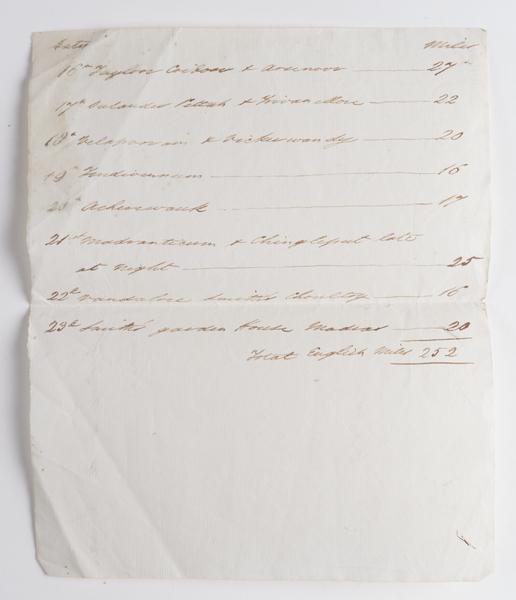 Date Miles
16th Taylors Coiloor & Arsenoor 27
17th Sulander Pettah & Trivanellore 22
18th Velaporam & Vickerwandy 20
19th Tindivennum 16
20th Acherwauk 17
21st Madranticum & Chingleput late
at Night 25
22d Vandalore Smiths Choultry 16
23d Smiths garden House Madras 20
Total English Miles 252